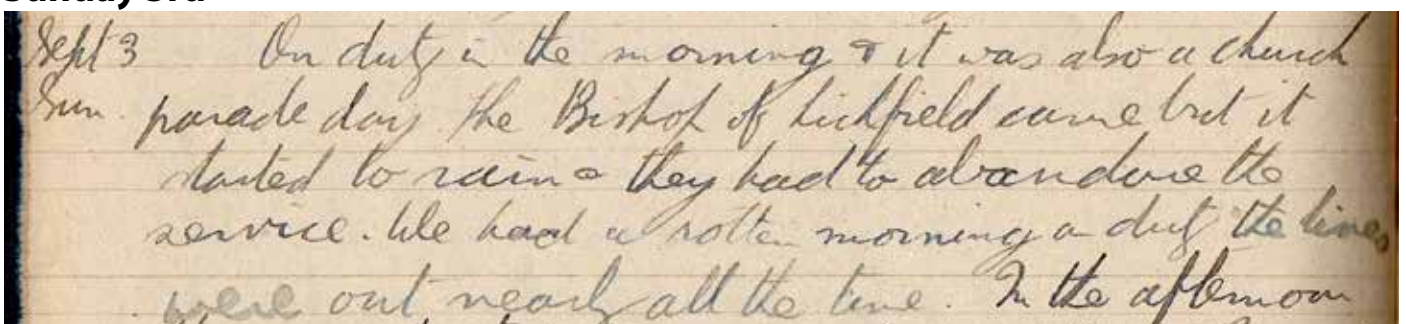 Sunday 3rd
Sept 3 On duty in the morning & it was also a church
Sun. parade day the Bishop of Lichfield came but it
started to rain & they had to abandone the
service. We had a rotten morning on duty the lines
were out nearly all the time. In the afternoon